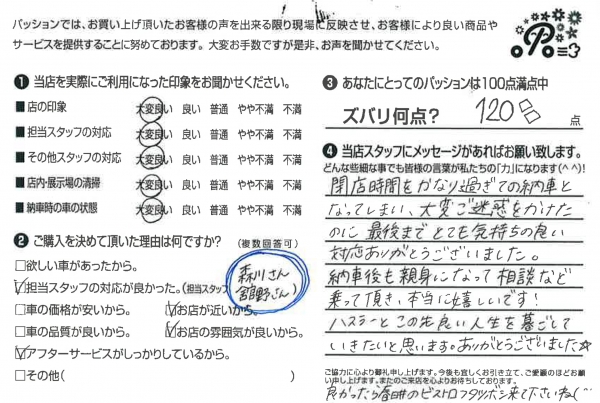 パッションでは、お買い上げ頂いたお客様の声を出来る限り現場に反映させ、お客様により良い商品や
サービスを提供することに努めております。大変お手数ですが是非、お声を聞かせてください。
❶ 当店を実際にご利用になった印象をお聞かせください。
■ 店の印象 大変良い 良い 普通 やや不満 不満
■ 担当スタッフの対応 大変良い 良い 普通 やや不満 不満
■ その他スタッフの対応 大変良い 良い 普通 やや不満 不満
■ 店内・展示場の清掃 大変良い 良い 普通 やや不満 不満
■ 納車時の車の状態 大変良い 良い 普通 やや不満 不満
❷ ご購入を決めて頂いた理由は何ですか? (複数回答可)
□欲しい車があったから。
☑担当スタッフの対応が良かった。(担当スタッフ 森川さん 舘野さん)
□車の価格が安いから。 ☑お店が近いから。
□車の品質が良いから。 ☑お店の雰囲気が良いから。
☑アフターサービスがしっかりしているから。
□その他( )
❸ あなたにとってのパッションは100点満点中
ズバリ何点? 120 点
❹ 当店スタッフにメッセージがあればお願い致します。
どんな些細な事でも皆様の言葉が私たちの「力」になります(^ ^)!
閉店時間をかなり過ぎての納車と
なってしまい、大変ご迷惑をかけた
のに 最後まで とても気持ちの良い
対応ありがとうございました。
納車後も親身になって 相談など
乗って頂き、本当に嬉しいです!
ハスラーと この先良い人生を過ごして
いきたいと思います。ありがとうございました☆
ご協力に心より御礼申し上げます。今後も宜しくお引き立て、ご愛顧のほどお願い
い申し上げます。またのご来店を心よりお待ちしております。
良かったら 春日井のビストロフタツボシ来て下さいね(^^